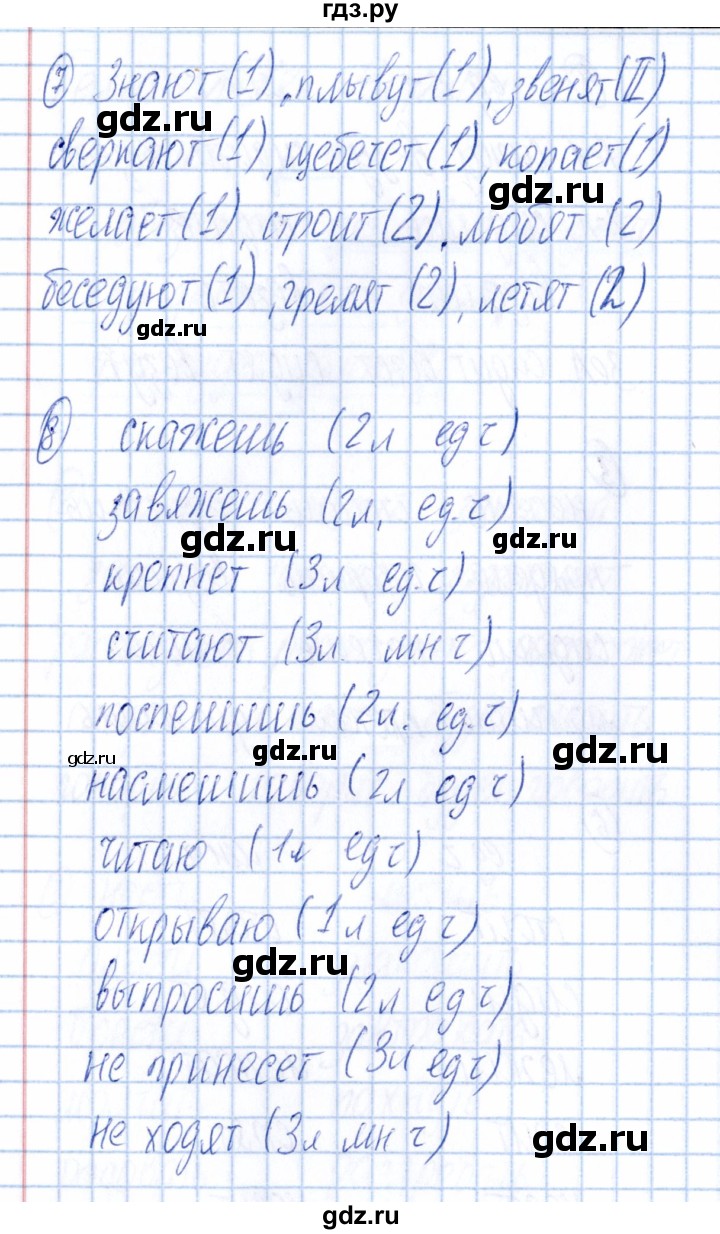 гдз.ру
⑦ Знают (1), плывут (1), звенят (II)
gdz.ru
сверкают (1), щебечет (1), копает (1)
gdz.ru
желает (1), строит (2), любят (2)
беседуют (1), гремят (2), летят (2)
gdz.ru
⑧ скажешь (2л ед ч)
завяжешь (2л, ед.ч)
gdz.ru gdz.ru
крепнет (3л ед.ч)
считают (3л. мн ч)
поспешишь (2л. ед.ч)
gdz.ru gdz.ru gdz.ru
насмешишь (2л ед ч)
читаю (1л ед ч)
открываю (1л ед ч)
gdz.ru
выпросишь (2л ед ч)
не принесет (3л ед ч)
не ходят (3л мн ч)
gdz.ru
gdz.ru